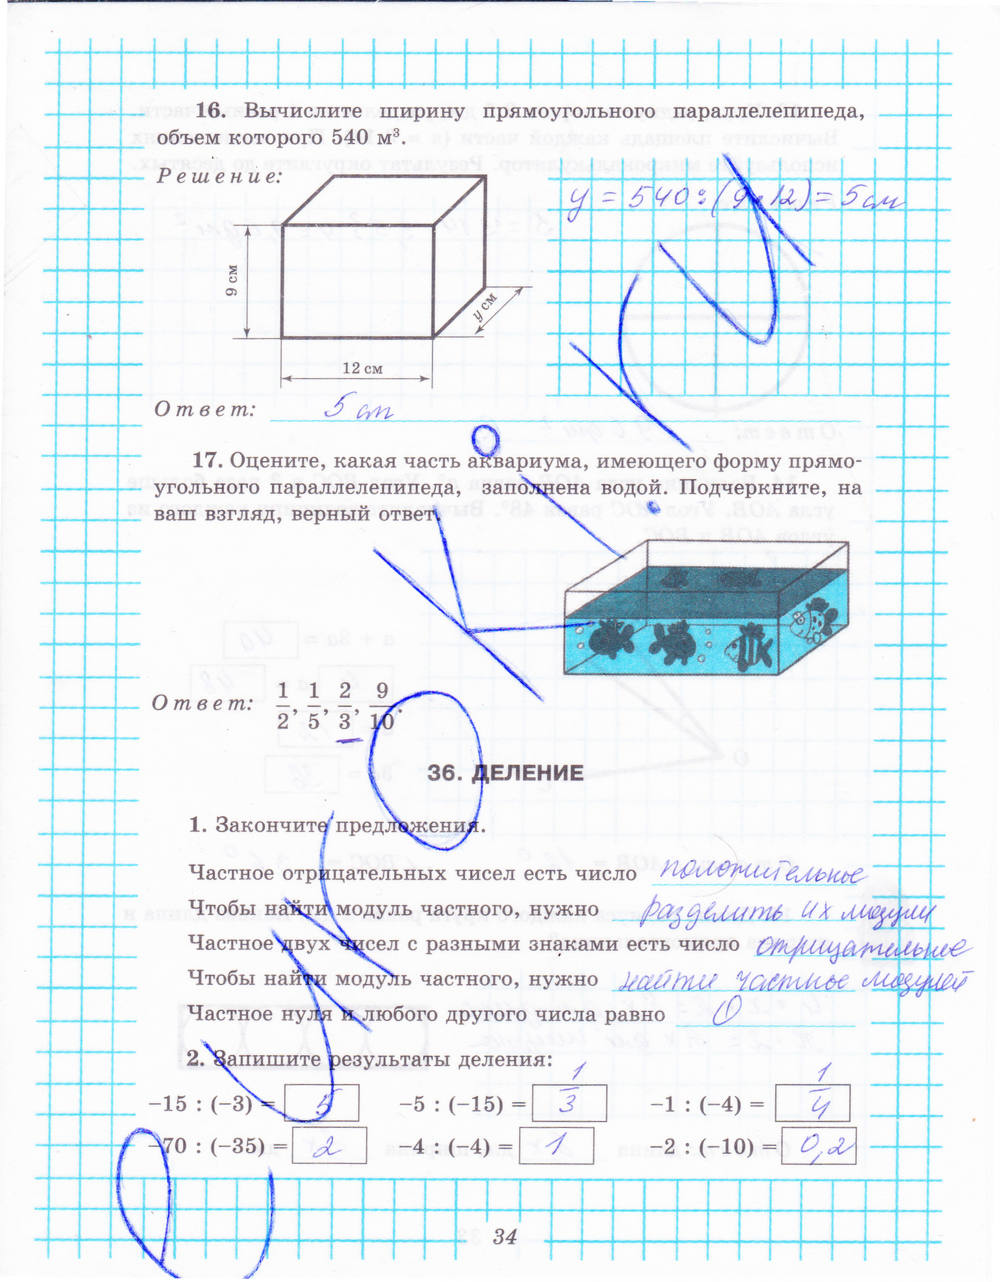 16. Вычислите ширину прямоугольного параллелепипеда,
объем которого 540 м³.
Решение:
y = 540:(9·12) = 5 см
9 см
y см
12 см
Ответ: 5 см
17. Оцените, какая часть аквариума, имеющего форму прямо-
угольного параллелепипеда, заполнена водой. Подчеркните, на
ваш взгляд, верный ответ.
Ответ: 1/2, 1/5, 2/3, 9/10.
36. ДЕЛЕНИЕ
1. Закончите предложения.
Частное отрицательных чисел есть число положительное
Чтобы найти модуль частного, нужно разделить их модули
Частное двух чисел с разными знаками есть число отрицательное
Чтобы найти модуль частного, нужно найти частное модулей
Частное нуля и любого другого числа равно 0
2. Запишите результаты деления:
−15 : (−3) = 5 −5 : (−15) = 1/3 −1 : (−4) = 1/4
−70 : (−35) = 2 −4 : (−4) = 1 −2 : (−10) = 0,2
34